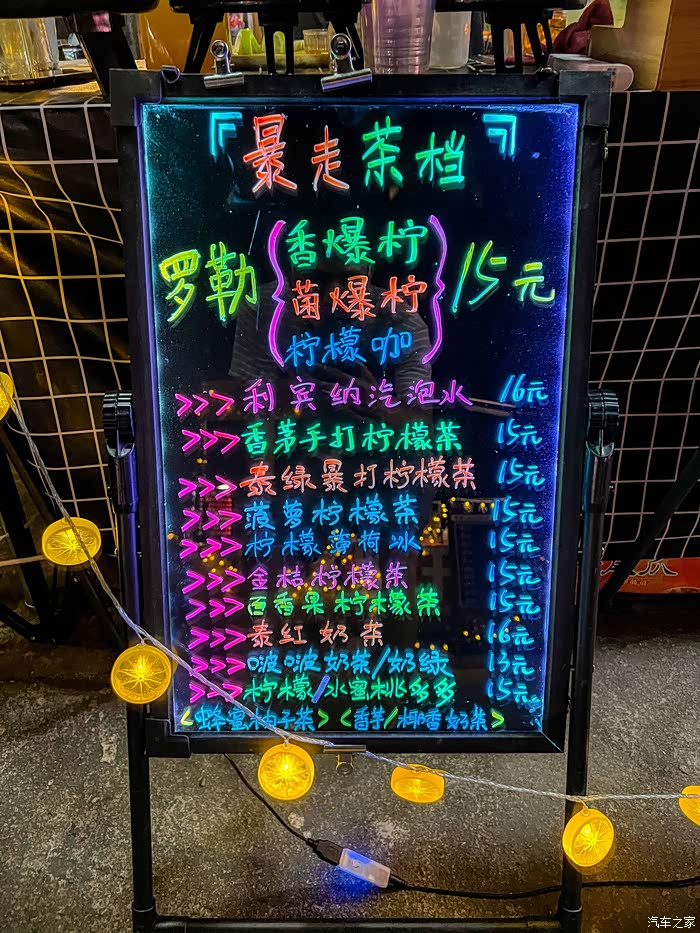 暴走茶档
香爆柠
罗勒 菌爆柠 15元
柠檬咖
>>> 利宾纳汽泡水 16元
>>> 香茅手打柠檬茶 15元
>>> 泰绿暴打柠檬茶 15元
>>> 菠萝柠檬茶 15元
>>> 柠檬薄荷冰 15元
>>> 金桔柠檬茶 15元
>>> 百香果柠檬茶 15元
>>> 泰红奶茶 16元
>>> 啵啵奶茶/奶绿 13元
>>> 柠檬/水蜜桃多多 15元
<蜂蜜柚子茶> <香芋/椰香奶茶>
汽车之家